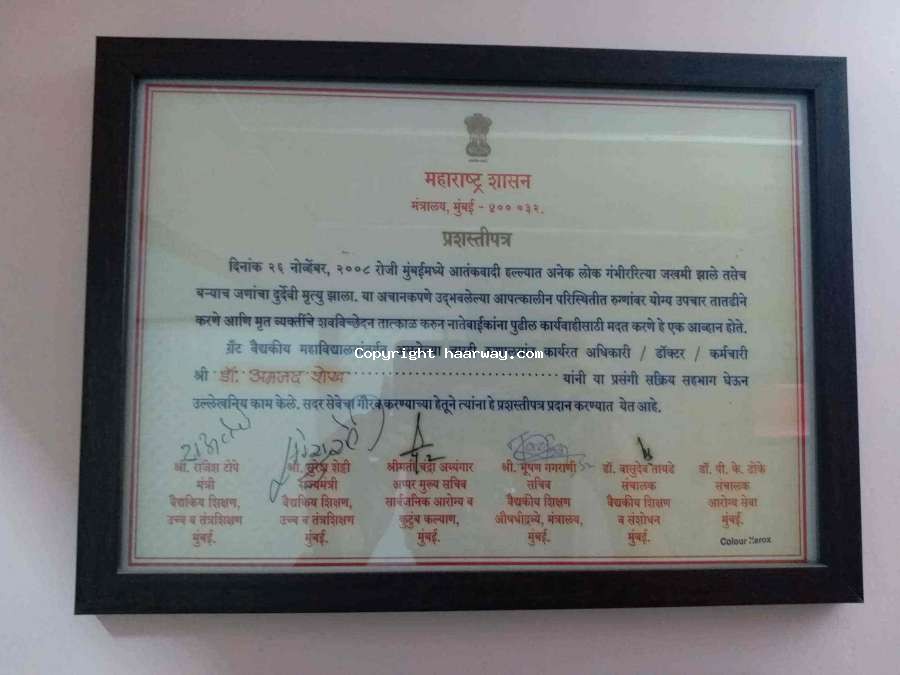 महाराष्ट्र शासन
मंत्रालय, मुंबई - ४०० ०३२.
प्रशस्तीपत्र
दिनांक २६ नोव्हेंबर, २००८ रोजी मुंबईमध्ये आतंकवादी हल्ल्यात अनेक लोक गंभीररित्या जखमी झाले तसेच
बऱ्याच जणांचा दुर्दैवी मृत्यु झाला. या अचानकपणे उद्भवलेल्या आपत्कालीन परिस्थितीत रुग्णांवर योग्य उपचार तातडीने
करणे आणि मृत व्यक्तींचे शवविच्छेदन तात्काळ करुन नातेवाईकांना पुढील कार्यवाहीसाठी मदत करणे हे एक आव्हान होते.
ग्रँट वैद्यकीय महाविद्यालयांतर्गत कार्यरत अधिकारी / डॉक्टर / कर्मचारी
Copyright haarway.com
श्री डॉ. अमजद शेख यांनी या प्रसंगी सक्रिय सहभाग घेऊन
उल्लेखनिय काम केले. सदर सेवेचा गौरव करण्याच्या हेतूने त्यांना हे प्रशस्तीपत्र प्रदान करण्यात येत आहे.
श्री. राजेश टोपे श्री. सुरेश शेट्टी श्रीमती चंद्रा अय्यंगार श्री. भूषण गगराणी डॉ. वासुदेव तायडे डॉ. पी. के. डोके
मंत्री राज्यमंत्री अप्पर मुख्य सचिव सचिव संचालक संचालक
वैद्यकीय शिक्षण, वैद्यकीय शिक्षण, सार्वजनिक आरोग्य व वैद्यकीय शिक्षण वैद्यकीय शिक्षण आरोग्य सेवा
उच्च व तंत्रशिक्षण उच्च व तंत्रशिक्षण कुटुंब कल्याण, औषधीद्रव्ये, मंत्रालय, व संशोधन मुंबई.
मुंबई. मुंबई. मुंबई. मुंबई. मुंबई.
Colour Xerox